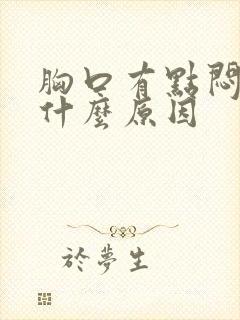 胸口有點悶
什麼原因
於夢生